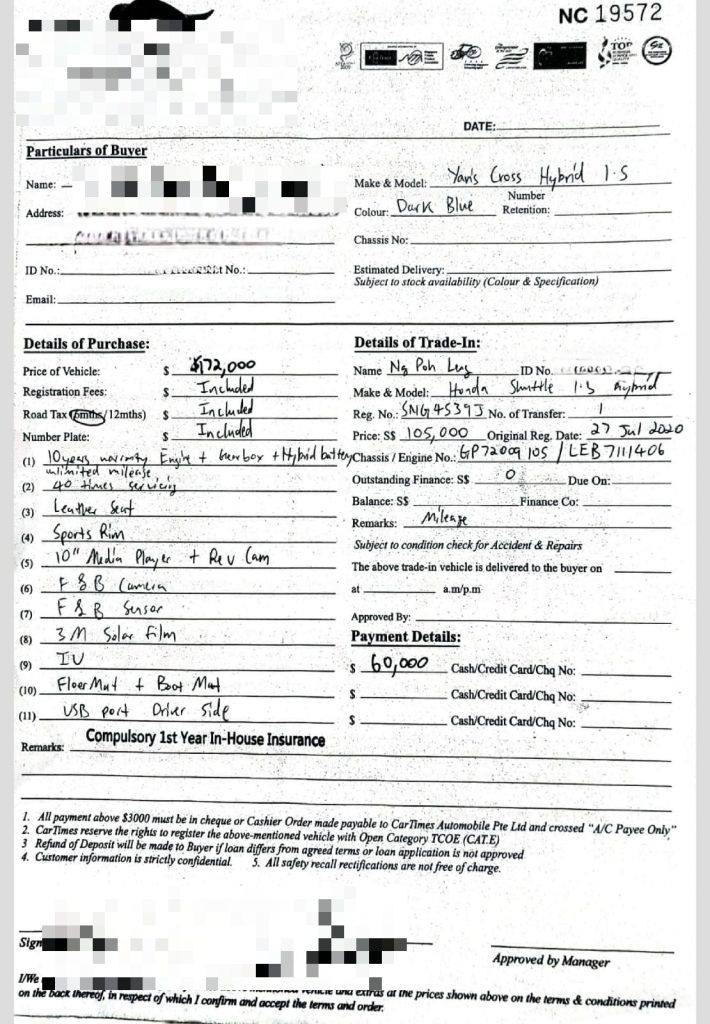 NC 19572
TOP
DATE:
Particulars of Buyer
Name:
Address:
ID No.: No.:
Email:
Make & Model: Yaris Cross Hybrid 1.5
Colour: Dark Blue Number Retention:
Chassis No:
Estimated Delivery:
Subject to stock availability (Colour & Specification)
Details of Purchase:
Price of Vehicle: $ $172,000
Registration Fees: $ Included
Road Tax (6mths/12mths) $ Included
Number Plate: $ Included
(1) 10 years warranty Engine + Gearbox + Hybrid battery
unlimited mileage
(2) 40 times servicing
(3) Leather Seat
(4) Sports Rim
(5) 10" Media Player + Rev Cam
(6) F & B Camera
(7) F & B Sensor
(8) 3M Solar Film
(9) IU
(10) Floor Mat + Boot Mat
(11) USB port Driver Side
Remarks: Compulsory 1st Year In-House Insurance
Details of Trade-In:
Name Ng Poh Leng ID No.
Make & Model: Honda Shuttle 1.5 Hybrid
Reg. No.: SNG4539J No. of Transfer: 1
Price: S$ 105,000 Original Reg. Date: 27 Jul 2020
Chassis / Engine No.: GP72009105 / LEB7111406
Outstanding Finance: S$ 0 Due On:
Balance: S$ Finance Co:
Remarks: Mileage
Subject to condition check for Accident & Repairs
The above trade-in vehicle is delivered to the buyer on
at a.m/p.m
Approved By:
Payment Details:
$ 60,000 Cash/Credit Card/Chq No:
$ Cash/Credit Card/Chq No:
$ Cash/Credit Card/Chq No:
1. All payment above $3000 must be in cheque or Cashier Order made payable to CarTimes Automobile Pte Ltd and crossed "A/C Payee Only"
2. CarTimes reserve the rights to register the above-mentioned vehicle with Open Category TCOE (CAT.E)
3 Refund of Deposit will be made to Buyer if loan differs from agreed terms or loan application is not approved
4. Customer information is strictly confidential. 5. All safety recall rectifications are not free of charge.
Sign
Approved by Manager
I/We vehicle and extras at the prices shown above on the terms & conditions printed
on the back thereof, in respect of which I confirm and accept the terms and order.